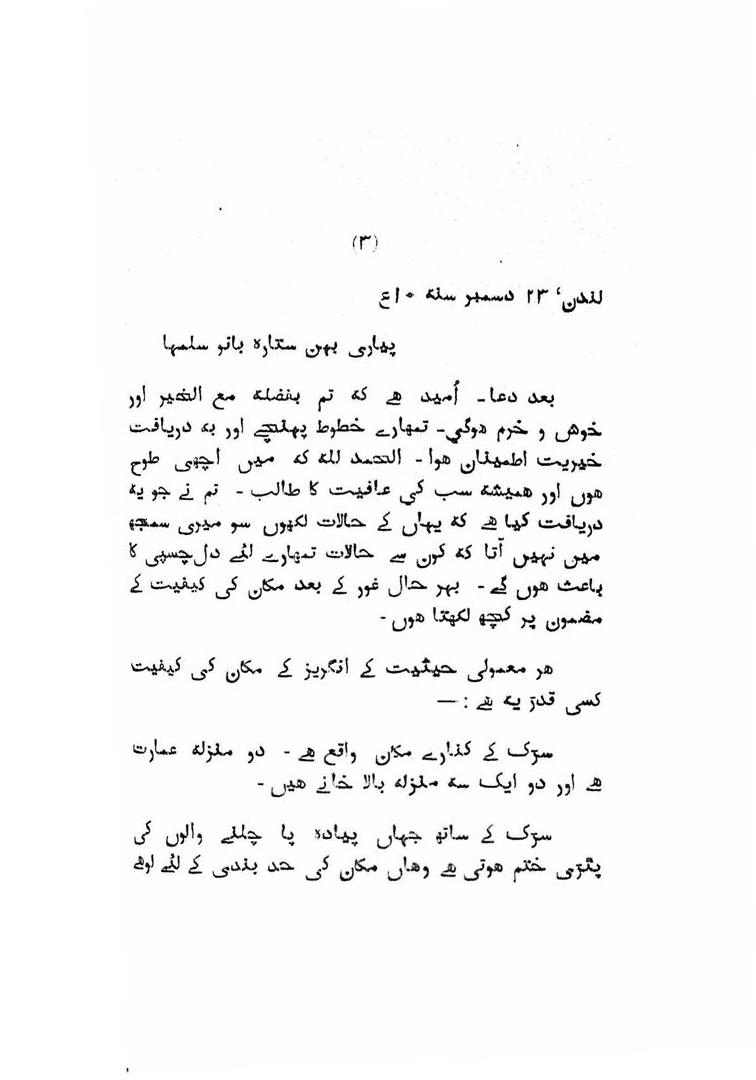 (۳)
لندن، ۲۳ دسمبر سنہ ۱۰ع
پیاری بہن ستارہ بانو سلمہا
بعد دعا۔ اُمید ہے کہ تم بفضلہ مع الخیر اور
خوش و خرم ہوگی۔ تمہارے خطوط پہنچے اور بہ دریافت
خیریت اطمینان ہوا۔ الحمد للہ کہ میں اچھی طرح
ہوں اور ہمیشہ سب کی عافیت کا طالب۔ تم نے جو یہ
دریافت کیا ہے کہ یہاں کے حالات لکھوں سو میری سمجھ
میں نہیں آتا کہ کون سے حالات تمہارے لئے دل چسپی کا
باعث ہوں گے۔ بہر حال غور کے بعد مکان کی کیفیت کے
مضمون پر کچھ لکھتا ہوں۔
ہر معمولی حیثیت کے انگریز کے مکان کی کیفیت
کسی قدر یہ ہے :—
سڑک کے کنارے مکان واقع ہے۔ دو منزلہ عمارت
ہے اور دو ایک سہ منزلہ بالا خانے ہیں۔
سڑک کے ساتھ جہاں پیادہ پا چلنے والوں کی
پٹڑی ختم ہوتی ہے وہاں مکان کی حد بندی کے لئے لوہے